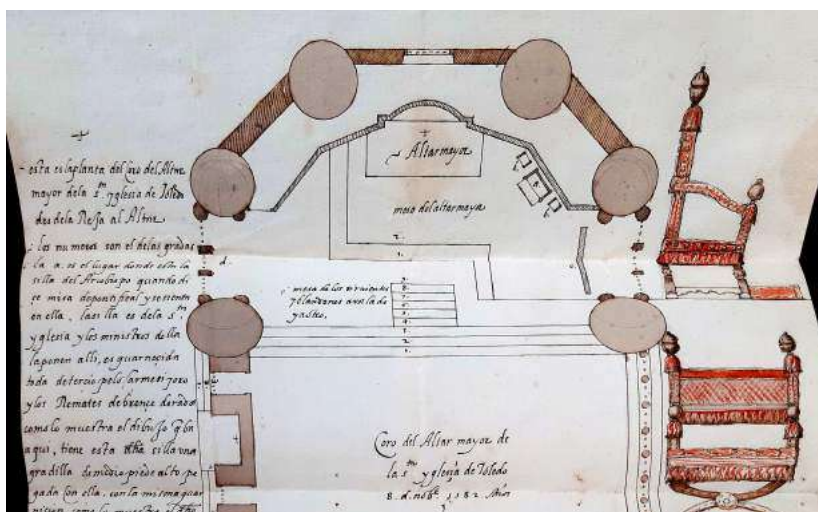 esta es la planta del Coro del Altar
mayor de la s.ta yglesia de Toledo
desde la Reja al Altar
los numeros son el de las gradas
la a. es el lugar donde esta la
silla del Arçobispo quando di
çe misa de pontifical y se sienta
en ella, la silla es de la s.ta
yglesia y los ministros della
la ponen alli, es guarneçida
toda de terçiopelo carmesi y oro
y los Remates de bronçe dorados
como lo muestra el dibujo q ba
aqui, tiene esta dha silla una
gradilla de medio pie de alto pe
gada con ella. con la misma guar
niçion como lo muestra el dho
Altar mayor
mesa del altar mayor
2.
1.
d.
mesa de los
8.
7.
6.
5.
4.
3.
2.
1.
Coro del Altar mayor de
la s.ta yglesia de Toledo
8. d. nobe. 1582 Años